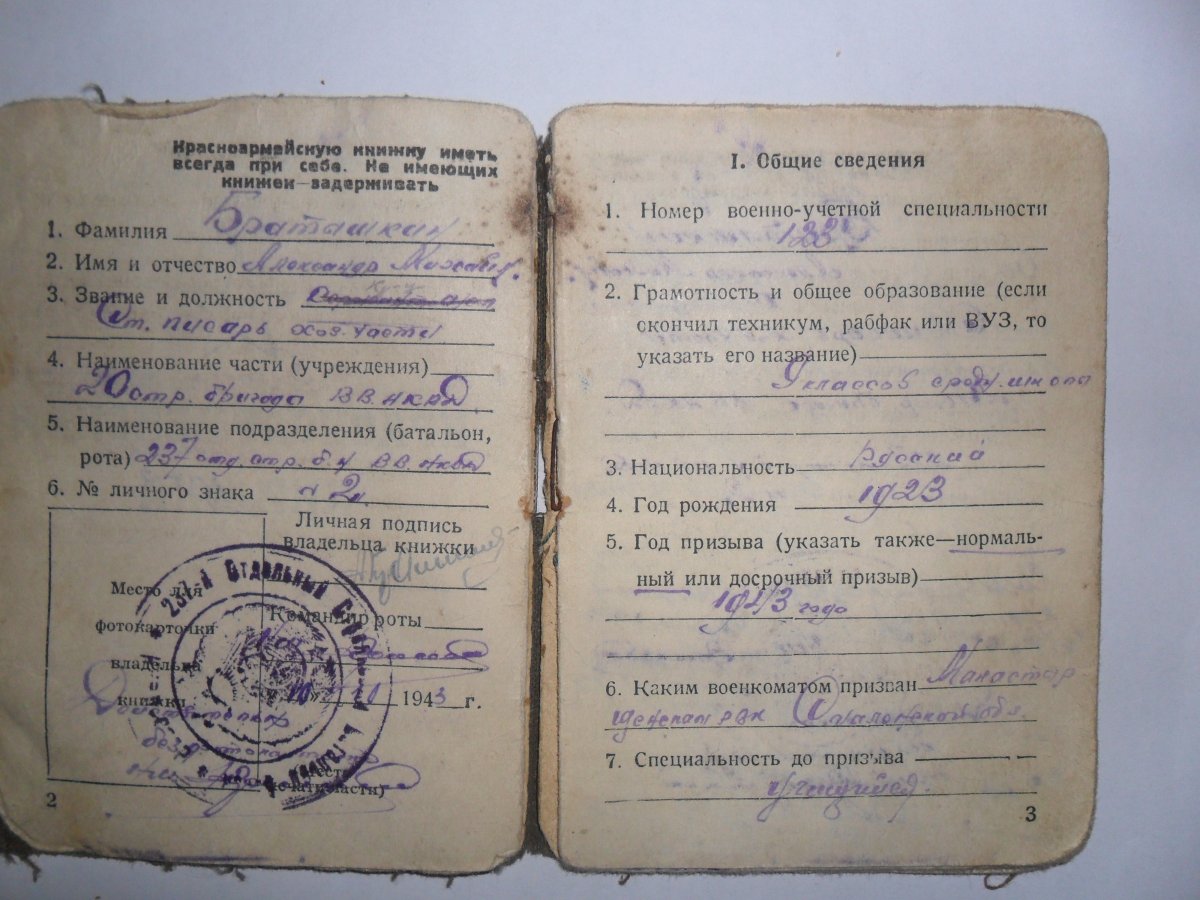 Красноармейскую книжку иметь
всегда при себе. Не имеющих
книжек—задерживать
1. Фамилия Браташкин
2. Имя и отчество Александр
3. Звание и должность
Ст. писарь хоз. части
4. Наименование части (учреждения)
20 стр. бригада ВВ НКВД
5. Наименование подразделения (батальон,
рота) 237 отд. стр. б-н ВВ НКВД
6. № личного знака 2
Личная подпись
владельца книжки
Место для
фотокарточки
владельца
книжки
Командир роты
10 1943 г.
Действительна
без
237-й Отдельный
Место
печати части)
2
I. Общие сведения
1. Номер военно-учетной специальности
133
2. Грамотность и общее образование (если
окончил техникум, рабфак или ВУЗ, то
указать его название)
9 классов средн. школы
3. Национальность Русский
4. Год рождения 1923
5. Год призыва (указать также—нормаль-
ный или досрочный призыв)
1943 года
6. Каким военкоматом призван
РВК
7. Специальность до призыва
учащийся
3